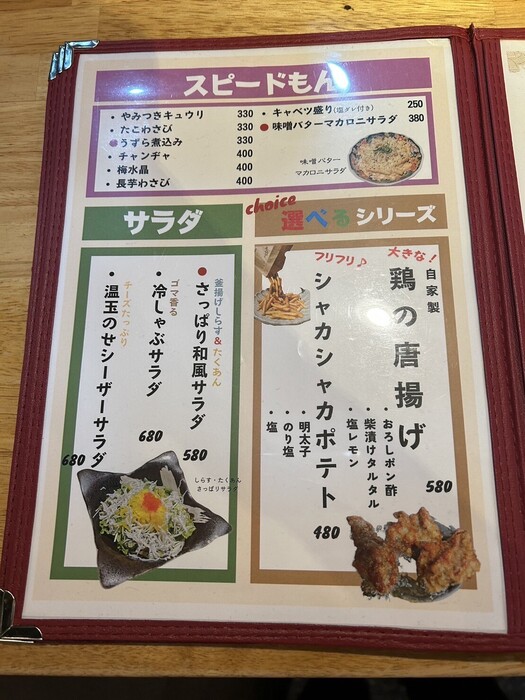 スピードもん
・やみつきキュウリ 330
・たこわさび 330
うずら煮込み 330
・チャンヂャ 400
・梅水晶 400
・長芋わさび 400
・キャベツ盛り(塩ダレ付き) 250
●味噌バターマカロニサラダ 380
味噌バター
マカロニサラダ
サラダ
釜揚げしらす&たくあん
●さっぱり和風サラダ 580
ゴマ香る
・冷しゃぶサラダ 680
チーズたっぷり
・温玉のせシーザーサラダ 680
しらす・たくあん
さっぱりサラダ
choice
選べるシリーズ
大きな!
自家製
鶏の唐揚げ 580
・おろしポン酢
・柴漬けタルタル
・塩レモン
フリフリ♪
シャカシャカポテト 480
・明太子
・のり塩
・塩